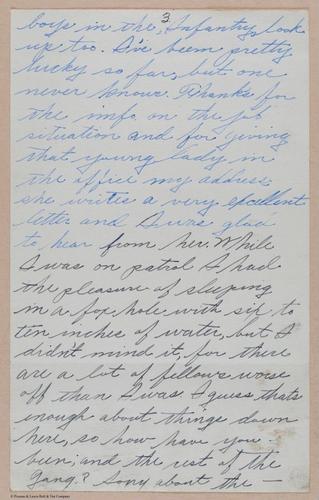 3
boys in the, Infantry, look
up too. I've been pretty
lucky so far, but one
never knows. Thanks for
the info. on the job
situation and for giving
that young lady in
the office my address
she writes a very excellent
letter and I was glad
to, hear from her. While
I was on patrol I had
the pleasure of sleeping
in a fox hole with six to
ten inches of water, but I
didn't mind it, for there
are a lot of fellows worse
off than I was. I guess thats
enough about things down
here, so how have you
been, and the rest of the
gang? Sorry about the —